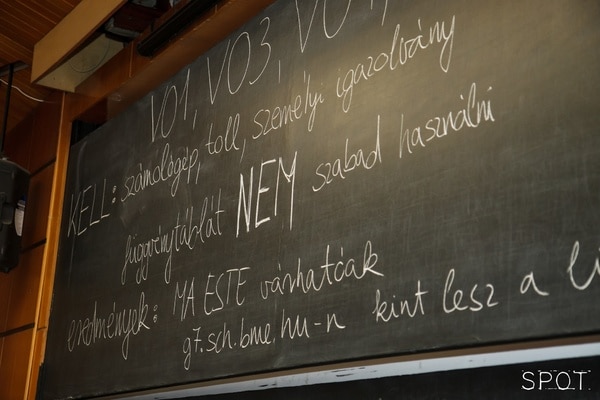 VO1, VO3, VO
KELL: számológép, toll, személyi igazolvány
függvénytáblát NEM szabad használni
eredmények: MA ESTE várhatóak
g7.sch.bme.hu-n kint lesz a
SPOT